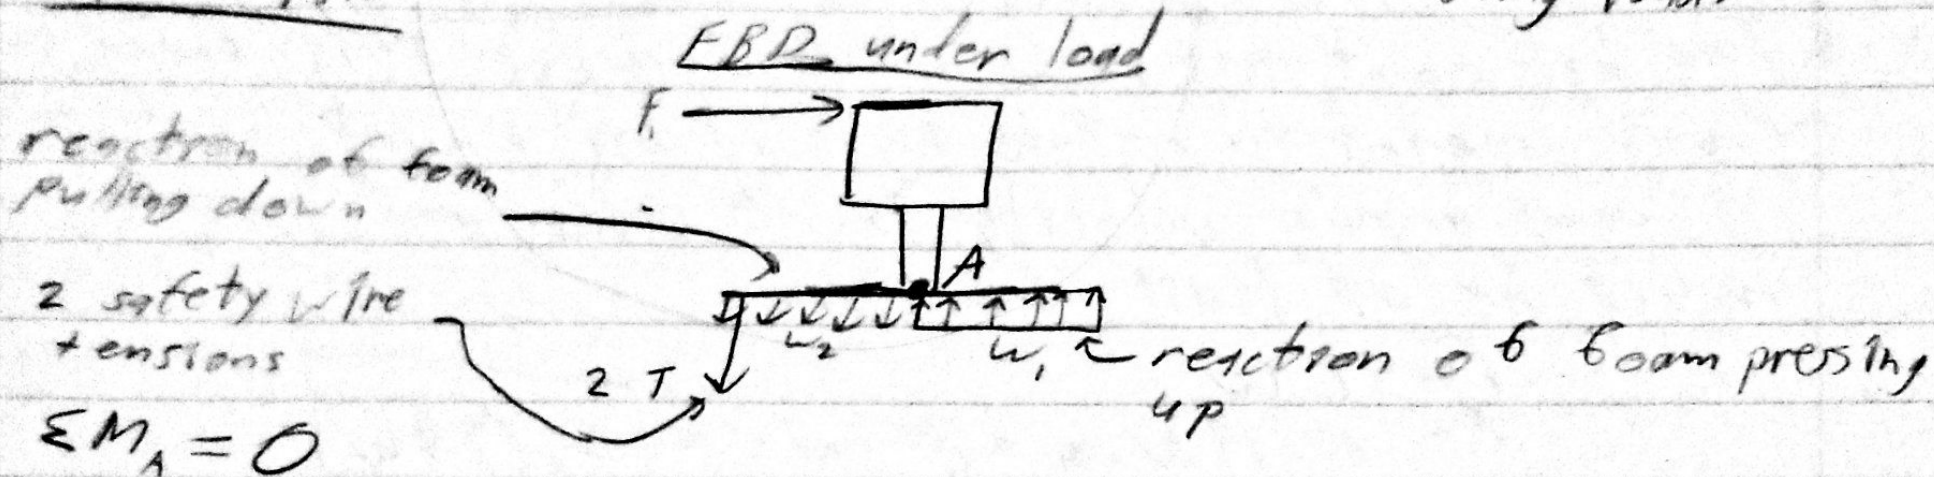 FBD under load
F,
reaction of foam
pulling down
A
2 safety wire
tensions
w2
w1
reaction of foam pressing
up
2 T
ΣMA = 0